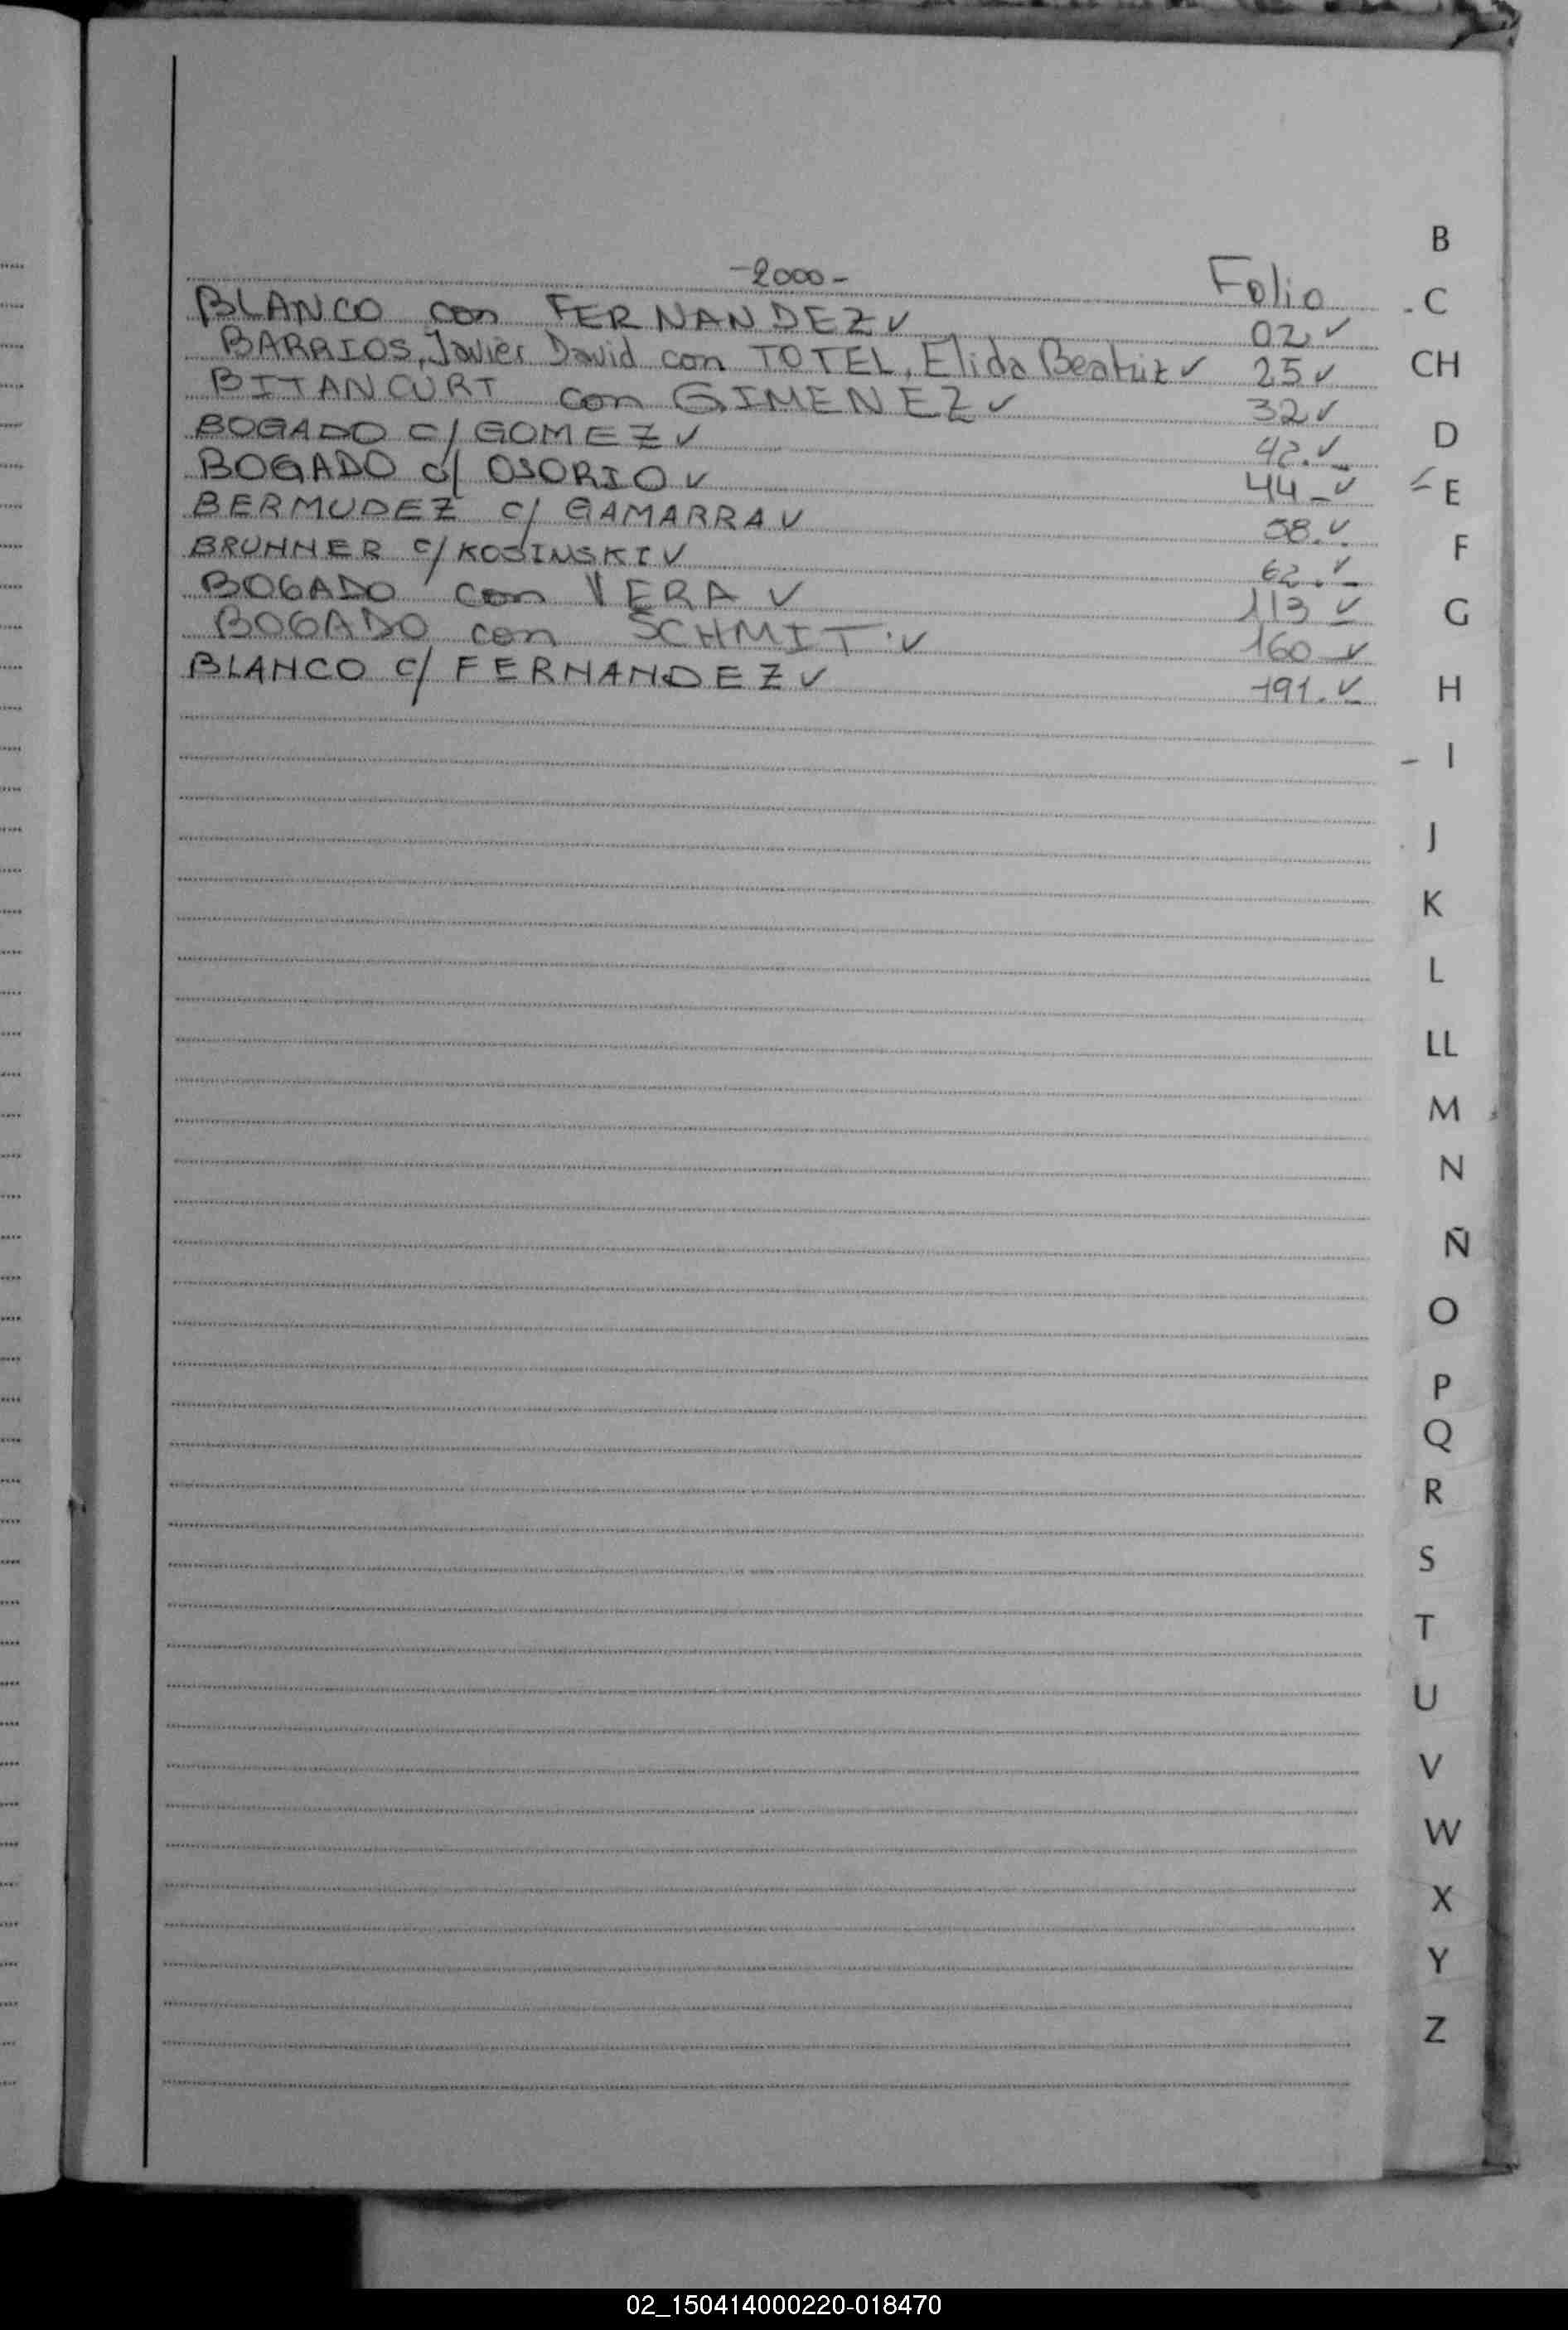 -2000-
Folio
BLANCO con FERNANDEZ ✓ 02.✓
BARRIOS, Javier David con TOTEL, Elida Beatriz ✓ 25 ✓
BITANCURT con GIMENEZ ✓ 32 ✓
BOGADO c/ GOMEZ ✓ 42.✓
BOGADO c/ OSORIO ✓ 44-✓
BERMUDEZ c/ GAMARRA ✓ 58.✓
BRUNNER c/ KOSINSKI ✓ 62.✓
BOGADO con VERA ✓ 113 ✓
BOGADO con SCHMIT. ✓ 160 ✓
BLANCO c/ FERNANDEZ ✓ 191.✓
B
C
CH
D
E
F
G
H
I
J
K
L
LL
M
N
Ñ
O
P
Q
R
S
T
U
V
W
X
Y
Z
02_150414000220-018470